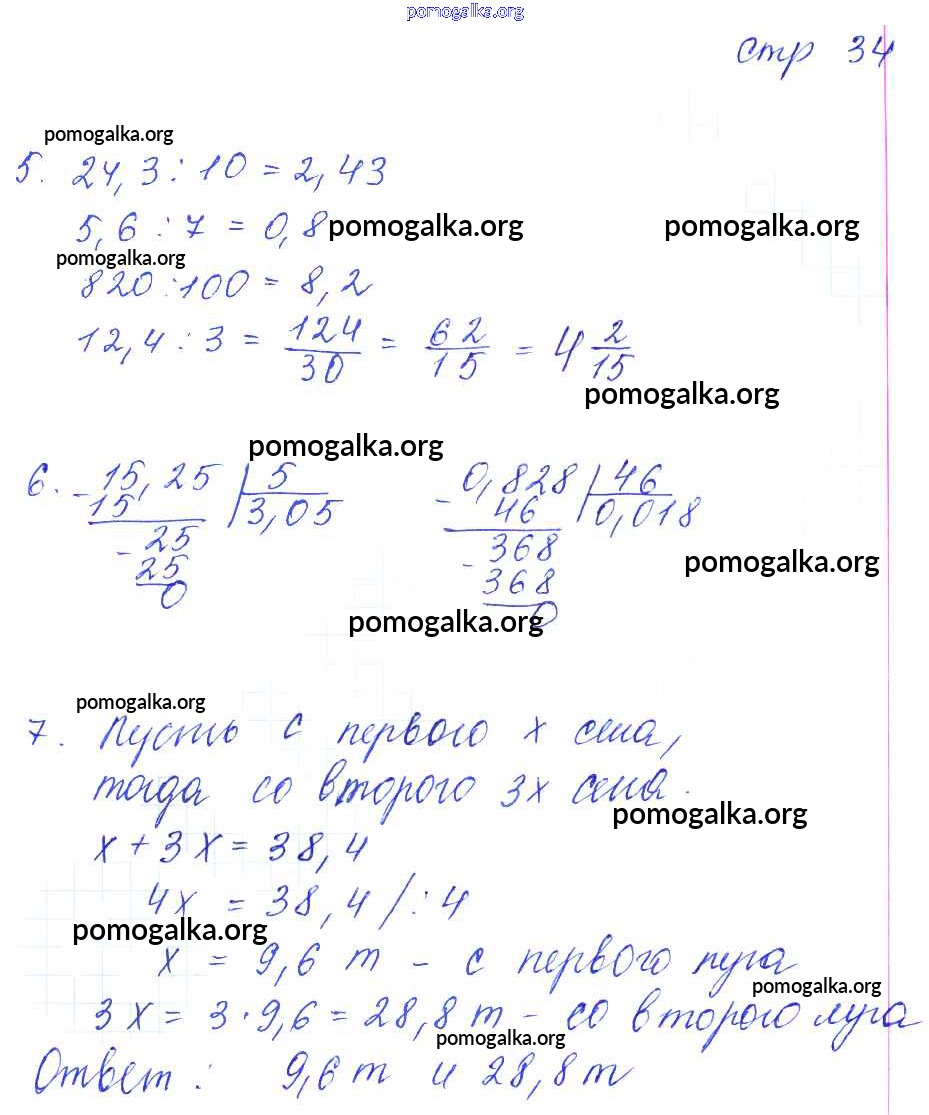 pomogalka.org
стр 34
pomogalka.org
5. 24,3 : 10 = 2,43
5,6 : 7 = 0,8 pomogalka.org pomogalka.org
pomogalka.org
820 : 100 = 8,2
12,4 : 3 = 124/30 = 62/15 = 4 2/15
pomogalka.org
pomogalka.org
6. 15,25 | 5 0,828 | 46
- 15 3,05 - 46 0,018
- 25 - 368
pomogalka.org
25 368
0 0
pomogalka.org
pomogalka.org
7. Пусть с первого x сена,
тогда со второго 3x сена.
pomogalka.org
x + 3x = 38,4
4x = 38,4 /: 4
pomogalka.org
x = 9,6 т - с первого луга
pomogalka.org
3x = 3 · 9,6 = 28,8 т - со второго луга
pomogalka.org
Ответ: 9,6 т и 28,8 т